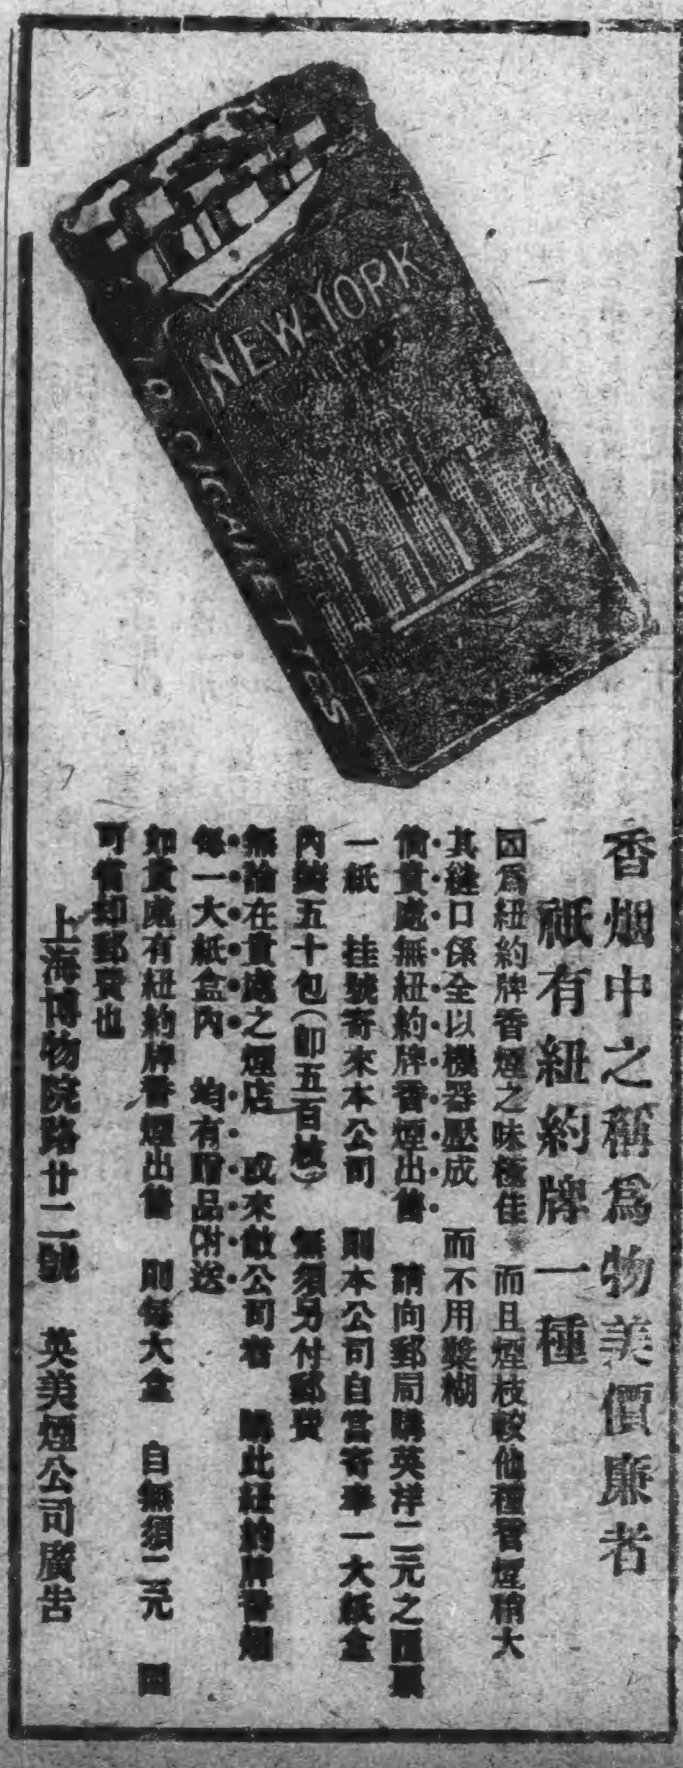 NEW YORK
10 CIGARETTES
香烟中之稱爲物美價廉者
祇有紐約牌一種
因爲紐約牌香煙之味極佳 而且煙枝較他種香煙稍大
其縫口係全以機器壓成 而不用漿糊
倘貴處無紐約牌香煙出售 請向郵局購英洋二元之匯票
一紙 挂號寄來本公司 則本公司自當寄奉一大紙盒
內裝五十包(卽五百枝) 無須另付郵費
無論在貴處之煙店 或來敝公司者 購此紐約牌香烟
每一大紙盒內 均有贈品附送
如貴處有紐約牌香煙出售 則每大盒 自無須二元 因
可省却郵費也
上海博物院路廿二號 英美煙公司廣告